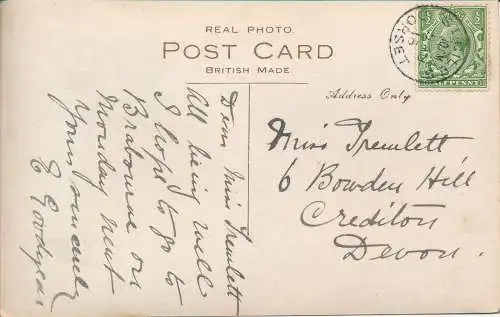 REAL PHOTO
POST CARD
BRITISH MADE
Address Only
Dear Miss Tremlett
All being well
I hope to go to
Brabourne on
Monday next
Yours sincerely
E Goodyear
Miss Tremlett
6 Bowden Hill
Crediton
Devon.
DORSET
HALFPENNY